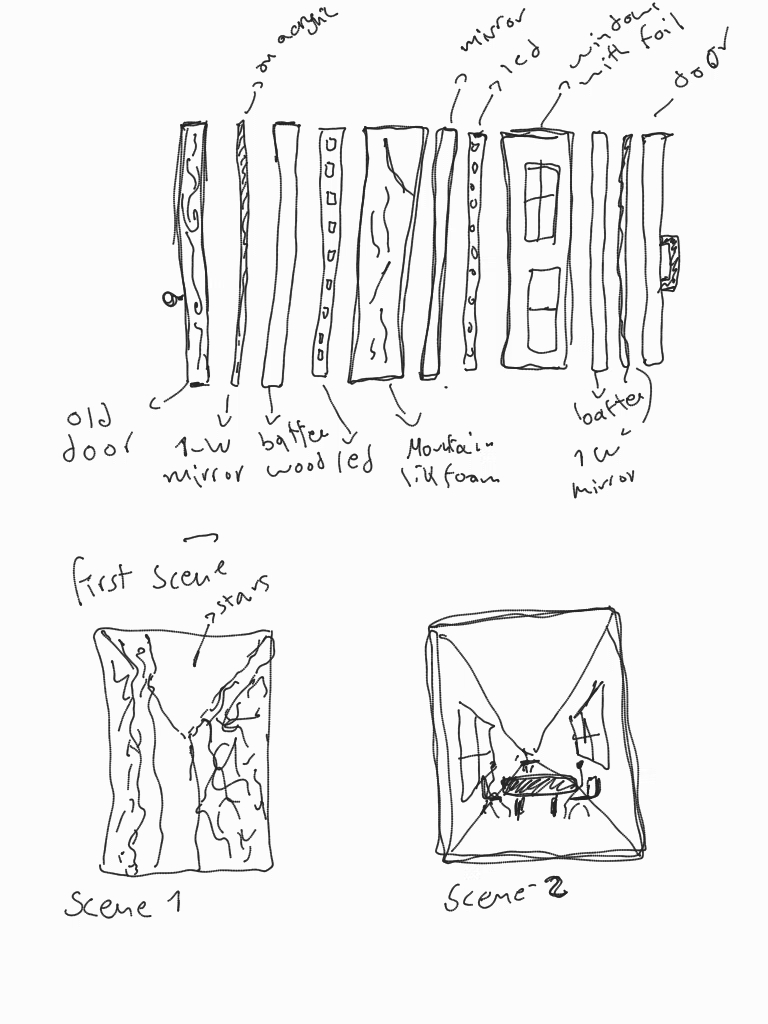 on acrylic
mirror
led
windows
with foil
door
old
door
1-W
mirror
batten
wood
led
Mountain
lik foam
batten
1W
mirror
first scene
stars
Scene 1
Scene-2